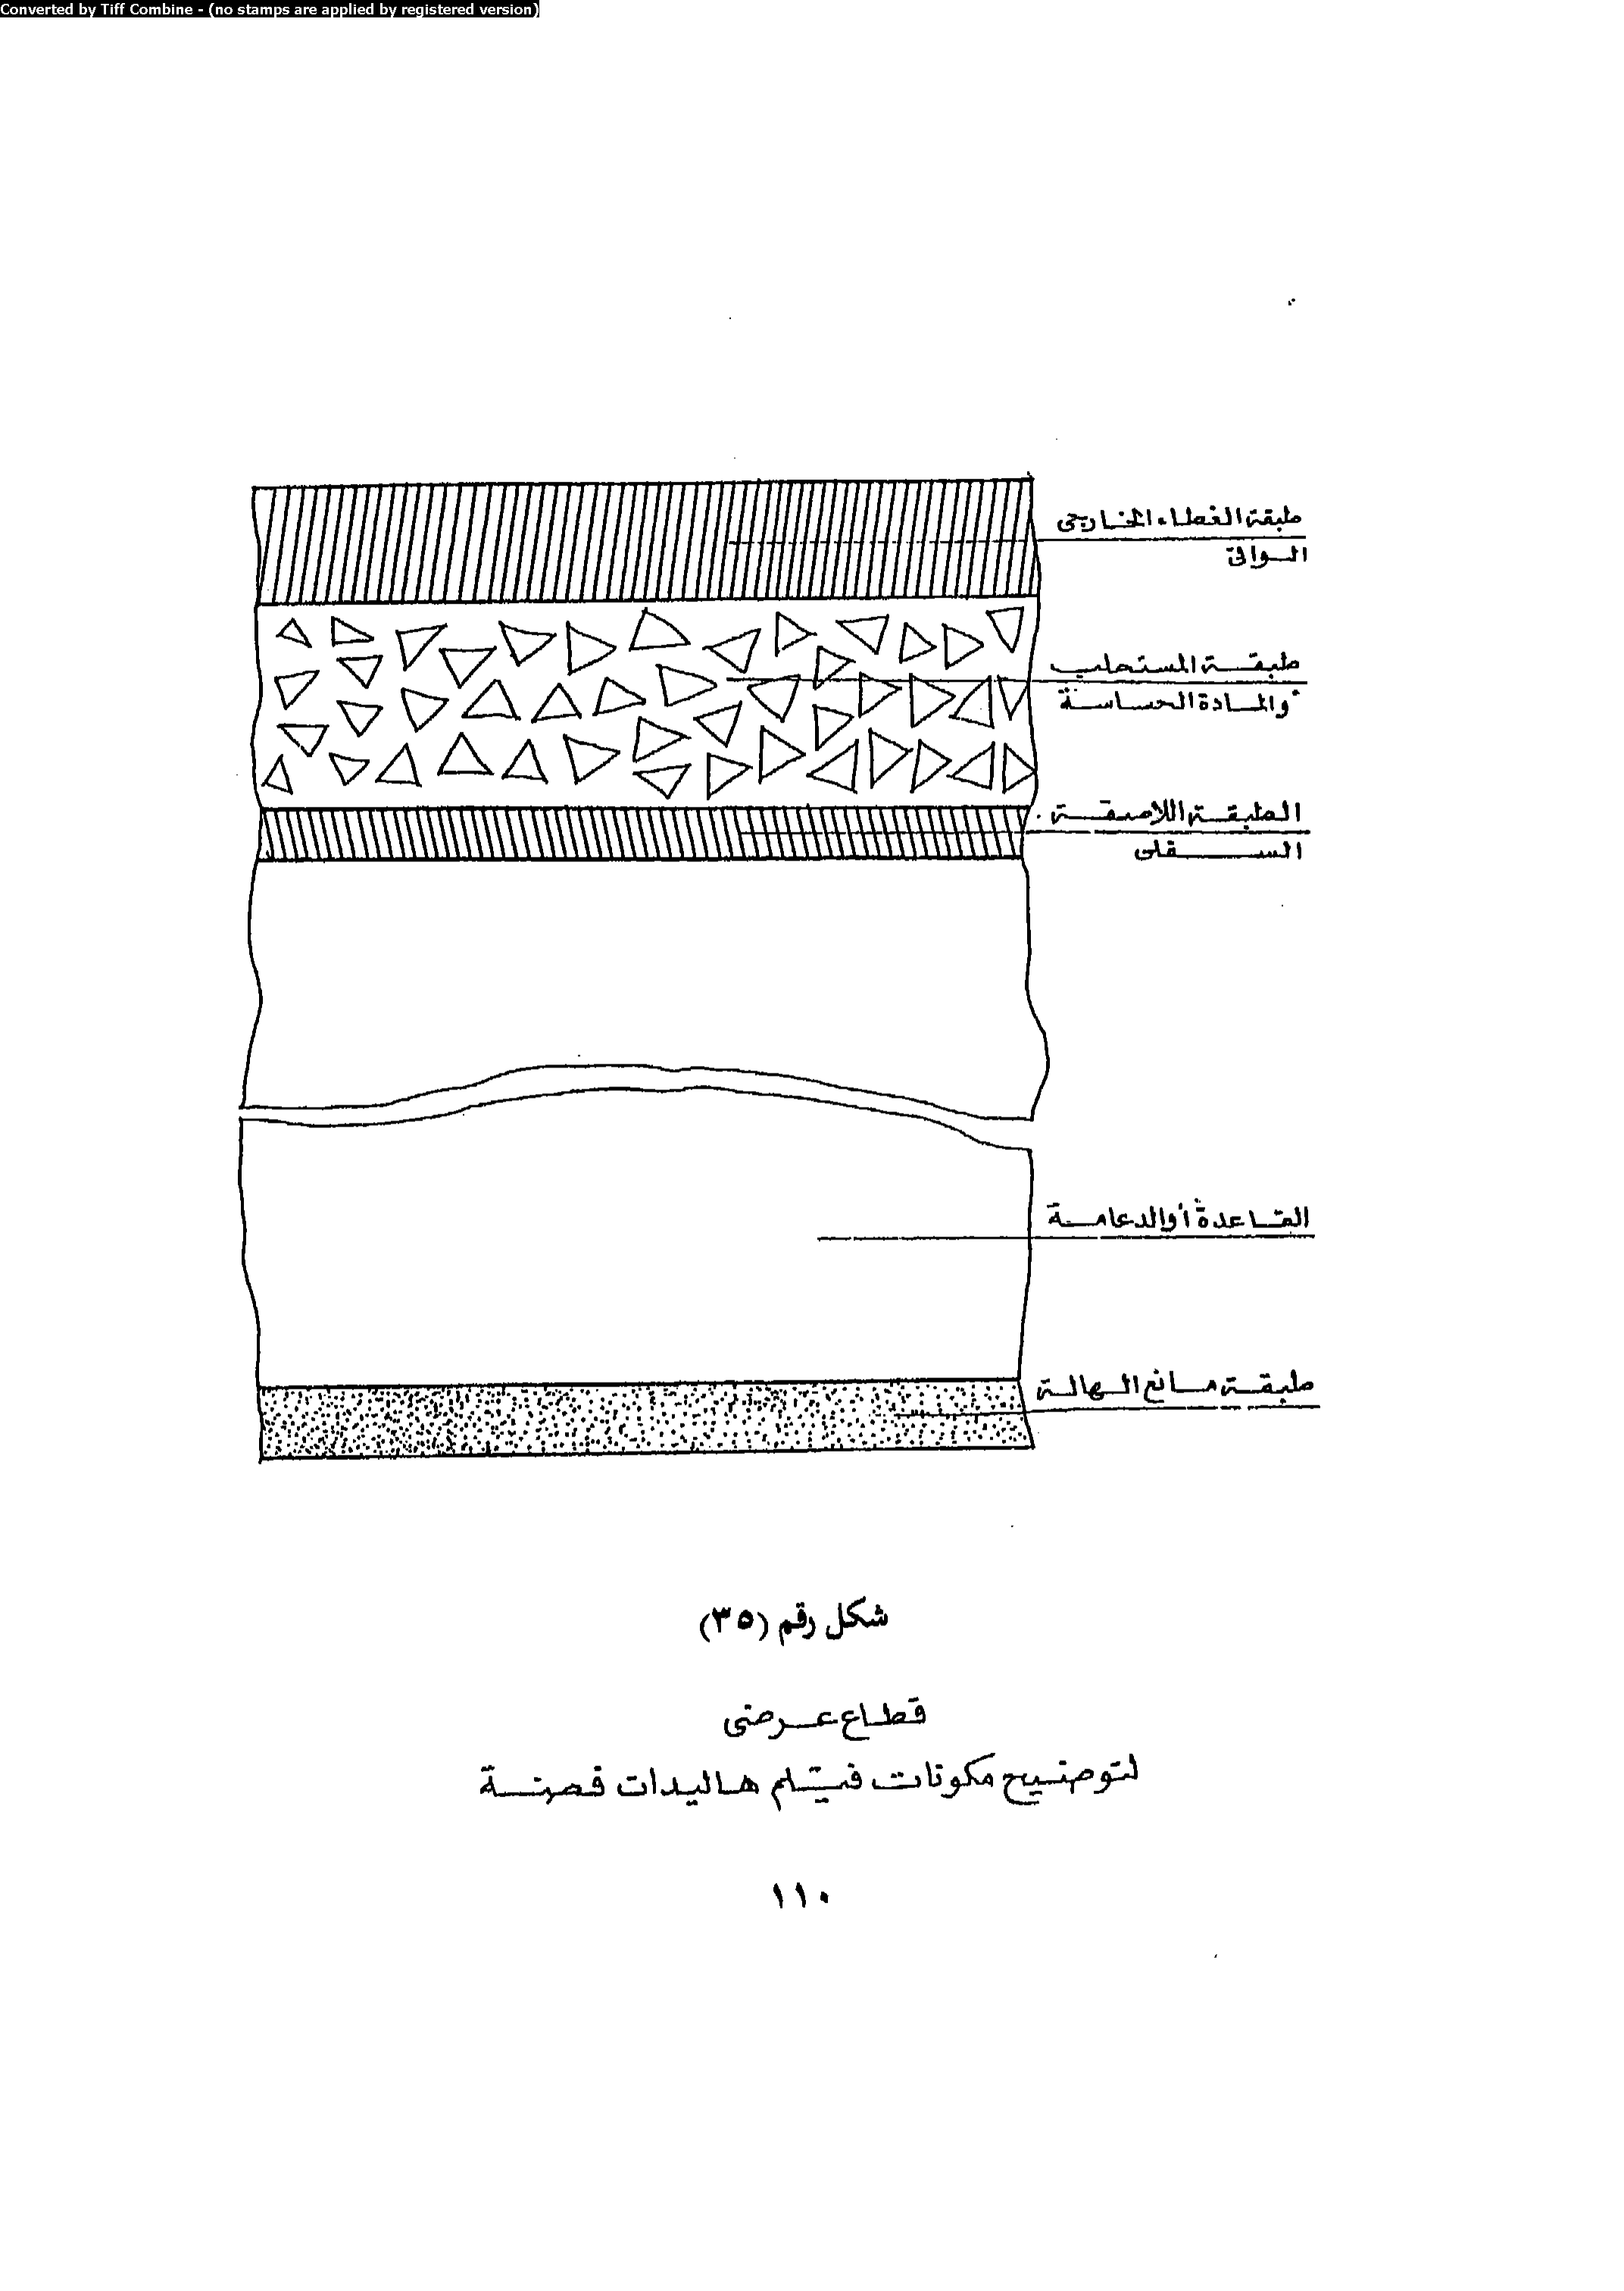 Converted by Tiff Combine - (no stamps are applied by registered version)
طبقة الغطاء الخارجى
الواقى
طبقة المستحلب
والمادة الحساسة
الطبقة اللاصقة
السفلى
القاعدة أو الدعامة
طبقة مانع الهالة
شكل رقم (٣٥)
قطاع عرضى
لتوضيح مكونات فيلم هاليدات فضة
١١٠